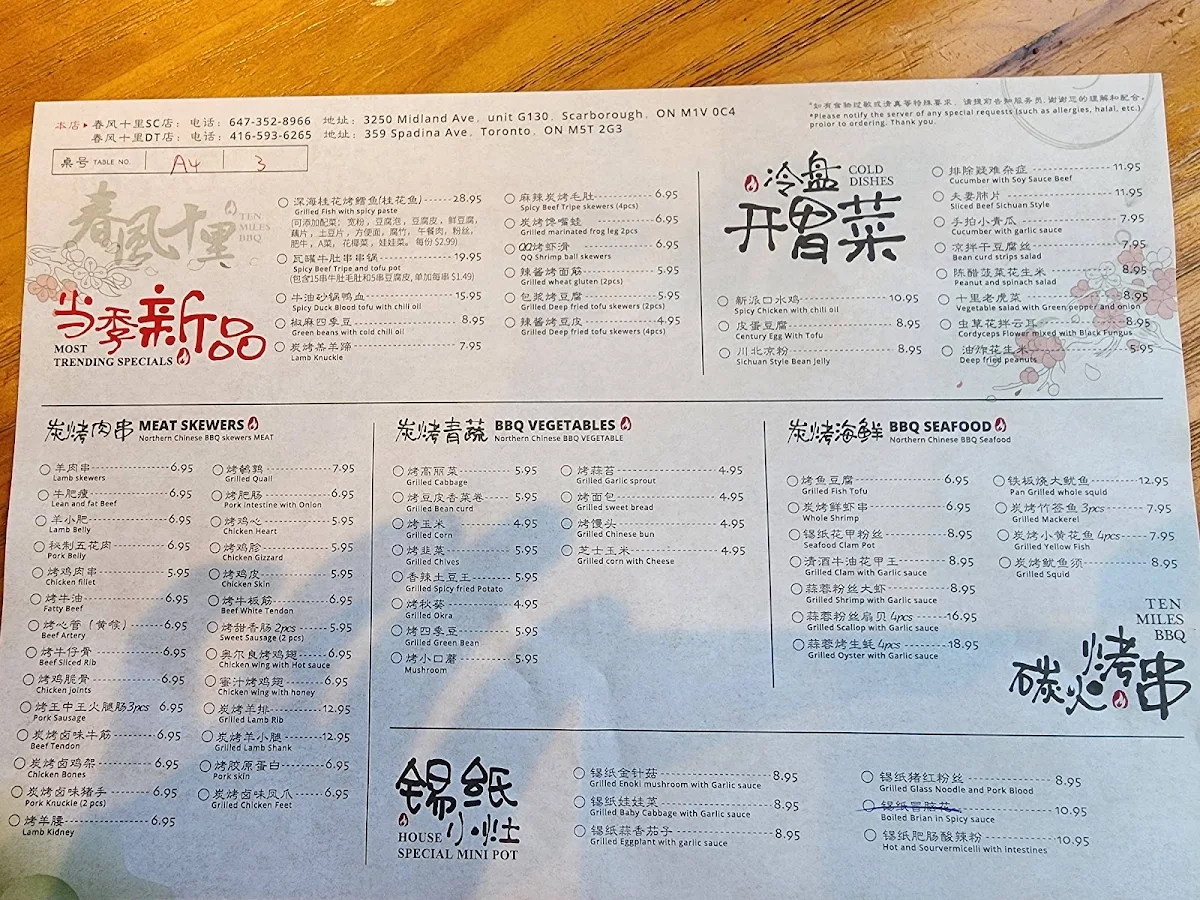 本店▸春风十里SC店：电话：647-352-8966 地址：3250 Midland Ave，unit G130，Scarborough，ON M1V 0C4
春风十里DT店：电话：416-593-6265 地址：359 Spadina Ave，Toronto，ON M5T 2G3
*如有食物过敏或清真等特殊要求，请提前告知服务员，谢谢您的理解和配合。
*Please notify the server of any special requests (such as allergies, halal, etc.)
proior to ordering. Thank you.
桌号 TABLE NO. A4 3
春风十里
TEN
MILES
BBQ
当季新品
MOST
TRENDING SPECIALS
深海桂花烤鲭鱼(桂花鱼) 28.95
Grilled Fish with spicy paste
(可添加配菜：宽粉，豆腐泡，豆腐皮，鲜豆腐，
藕片，土豆片，方便面，腐竹，午餐肉，粉丝，
肥牛，A菜，花椰菜，娃娃菜。每份 $2.99)
瓦罐牛肚串串锅 19.95
Spicy Beef Tripe and tofu pot
(包含15串牛肚毛肚和5串豆腐皮，单加每串 $1.49)
牛油砂锅鸭血 15.95
Spicy Duck Blood tofu with chili oil
椒麻四季豆 8.95
Green beans with cold chili oil
炭烤羔羊蹄 7.95
Lamb Knuckle
麻辣炭烤毛肚 6.95
Spicy Beef Tripe skewers (4pcs)
炭烤馋嘴蛙 6.95
Grilled marinated frog leg 2pcs
QQ烤虾滑 6.95
QQ Shrimp ball skewers
辣酱烤面筋 5.95
Grilled wheat gluten (2pcs)
包浆烤豆腐 5.95
Grilled Deep fried tofu skewers (2pcs)
辣酱烤豆皮 4.95
Grilled Deep fried tofu skewers (4pcs)
冷盘 COLD
DISHES
开胃菜
新派口水鸡 10.95
Spicy Chicken with chili oil
皮蛋豆腐 8.95
Century Egg With Tofu
川北凉粉 8.95
Sichuan Style Bean Jelly
排除疑难杂症 11.95
Cucumber with Soy Sauce Beef
夫妻肺片 11.95
Sliced Beef Sichuan Style
手拍小青瓜 7.95
Cucumber with garlic sauce
凉拌干豆腐丝 7.95
Bean curd strips salad
陈醋菠菜花生米 8.95
Peanut and spinach salad
十里老虎菜 8.95
Vegetable salad with Green pepper and onion
虫草花拌云耳 8.95
Cordyceps Flower mixed with Black Fungus
油炸花生米 5.95
Deep fried peanuts
炭烤肉串 MEAT SKEWERS
Northern Chinese BBQ skewers MEAT
羊肉串 6.95
Lamb skewers
牛肥瘦 6.95
Lean and fat Beef
羊小肥 6.95
Lamb Belly
秘制五花肉 6.95
Pork Belly
烤鸡肉串 5.95
Chicken fillet
烤牛油 6.95
Fatty Beef
烤心管（黄喉） 6.95
Beef Artery
烤牛仔骨 6.95
Beef Sliced Rib
烤鸡脆骨 6.95
Chicken joints
烤王中王火腿肠3pcs 6.95
Pork Sausage
炭烤卤味牛筋 6.95
Beef Tendon
炭烤卤鸡架 6.95
Chicken Bones
炭烤卤味猪手 6.95
Pork Knuckle (2 pcs)
烤羊腰 6.95
Lamb Kidney
烤鹌鹑 7.95
Grilled Quail
烤肥肠 6.95
Pork intestine with Onion
烤鸡心 5.95
Chicken Heart
烤鸡胗 5.95
Chicken Gizzard
烤鸡皮 5.95
Chicken Skin
烤牛板筋 6.95
Beef White Tendon
烤甜香肠 2pcs 5.95
Sweet Sausage (2 pcs)
奥尔良烤鸡翅 6.95
Chicken wing with Hot sauce
蜜汁烤鸡翅 6.95
Chicken wing with honey
炭烤羊排 12.95
Grilled Lamb Rib
炭烤羊小腿 12.95
Grilled Lamb Shank
烤胶原蛋白 6.95
Pork skin
炭烤卤味凤爪 6.95
Grilled Chicken Feet
炭烤青蔬 BBQ VEGETABLES
Northern Chinese BBQ VEGETABLE
烤高丽菜 5.95
Grilled Cabbage
烤豆皮香菜卷 5.95
Grilled Bean curd
烤玉米 4.95
Grilled Corn
烤韭菜 5.95
Grilled Chives
香辣土豆王 5.95
Grilled Spicy fried Potato
烤秋葵 4.95
Grilled Okra
烤四季豆 5.95
Grilled Green Bean
烤小口蘑 5.95
Mushroom
烤蒜苔 4.95
Grilled Garlic sprout
烤面包 4.95
Grilled sweet bread
烤馒头 4.95
Grilled Chinese bun
芝士玉米 4.95
Grilled corn with Cheese
炭烤海鲜 BBQ SEAFOOD
Northern Chinese BBQ Seafood
烤鱼豆腐 6.95
Grilled Fish Tofu
炭烤鲜虾串 6.95
Whole Shrimp
锡纸花甲粉丝 8.95
Seafood Clam Pot
清酒牛油花甲王 8.95
Grilled Clam with Garlic sauce
蒜蓉粉丝大虾 8.95
Grilled Shrimp with Garlic sauce
蒜蓉粉丝扇贝 4pcs 16.95
Grilled Scallop with Garlic sauce
蒜蓉烤生蚝 4pcs 18.95
Grilled Oyster with Garlic sauce
铁板烧大鱿鱼 12.95
Pan Grilled whole squid
炭烤竹签鱼 3pcs 7.95
Grilled Mackerel
炭烤小黄花鱼 4pcs 7.95
Grilled Yellow Fish
炭烤鱿鱼须 8.95
Grilled Squid
TEN
MILES
BBQ
碳火烤串
锡纸小灶
HOUSE
SPECIAL MINI POT
锡纸金针菇 8.95
Grilled Enoki mushroom with Garlic sauce
锡纸娃娃菜 8.95
Grilled Baby Cabbage with Garlic sauce
锡纸蒜香茄子 8.95
Grilled Eggplant with garlic sauce
锡纸猪红粉丝 8.95
Grilled Glass Noodle and Pork Blood
锡纸冒脑花 10.95
Boiled Brian in Spicy sauce
锡纸肥肠酸辣粉 10.95
Hot and Sourvermicelli with intestines